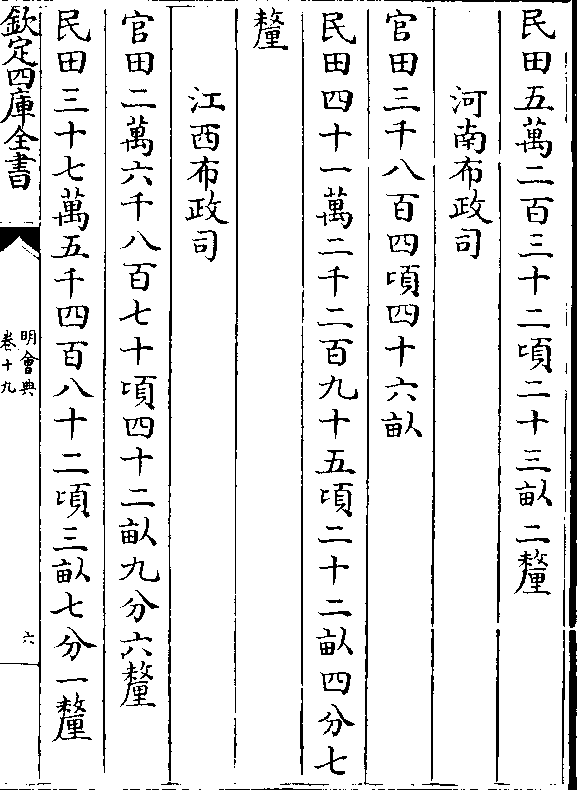 民田五萬二百三十二頃二十三畝二釐
河南布政司
官田三千八百四頃四十六畝
民田四十一萬二千二百九十五頃二十二畝四分七
釐
江西布政司
官田二萬六千八百七十頃四十二畝九分六釐
民田三十七萬五千四百八十二頃三畝七分一釐
欽定四庫全書
明會典
卷十九
六